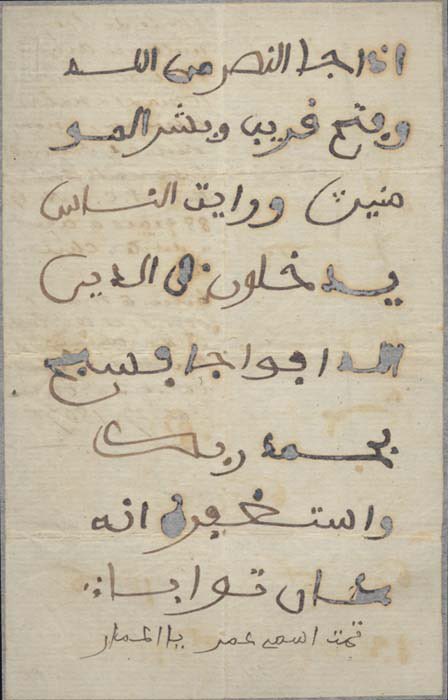 اذا جا النصر من الله
وفتح قريب وبشر المو
منين وورايت الناس
يدخلون في الدين
الله افواجا فسبح
بحمد ربك
واستغفره انه
كان توابا
تمت اسمي عمر